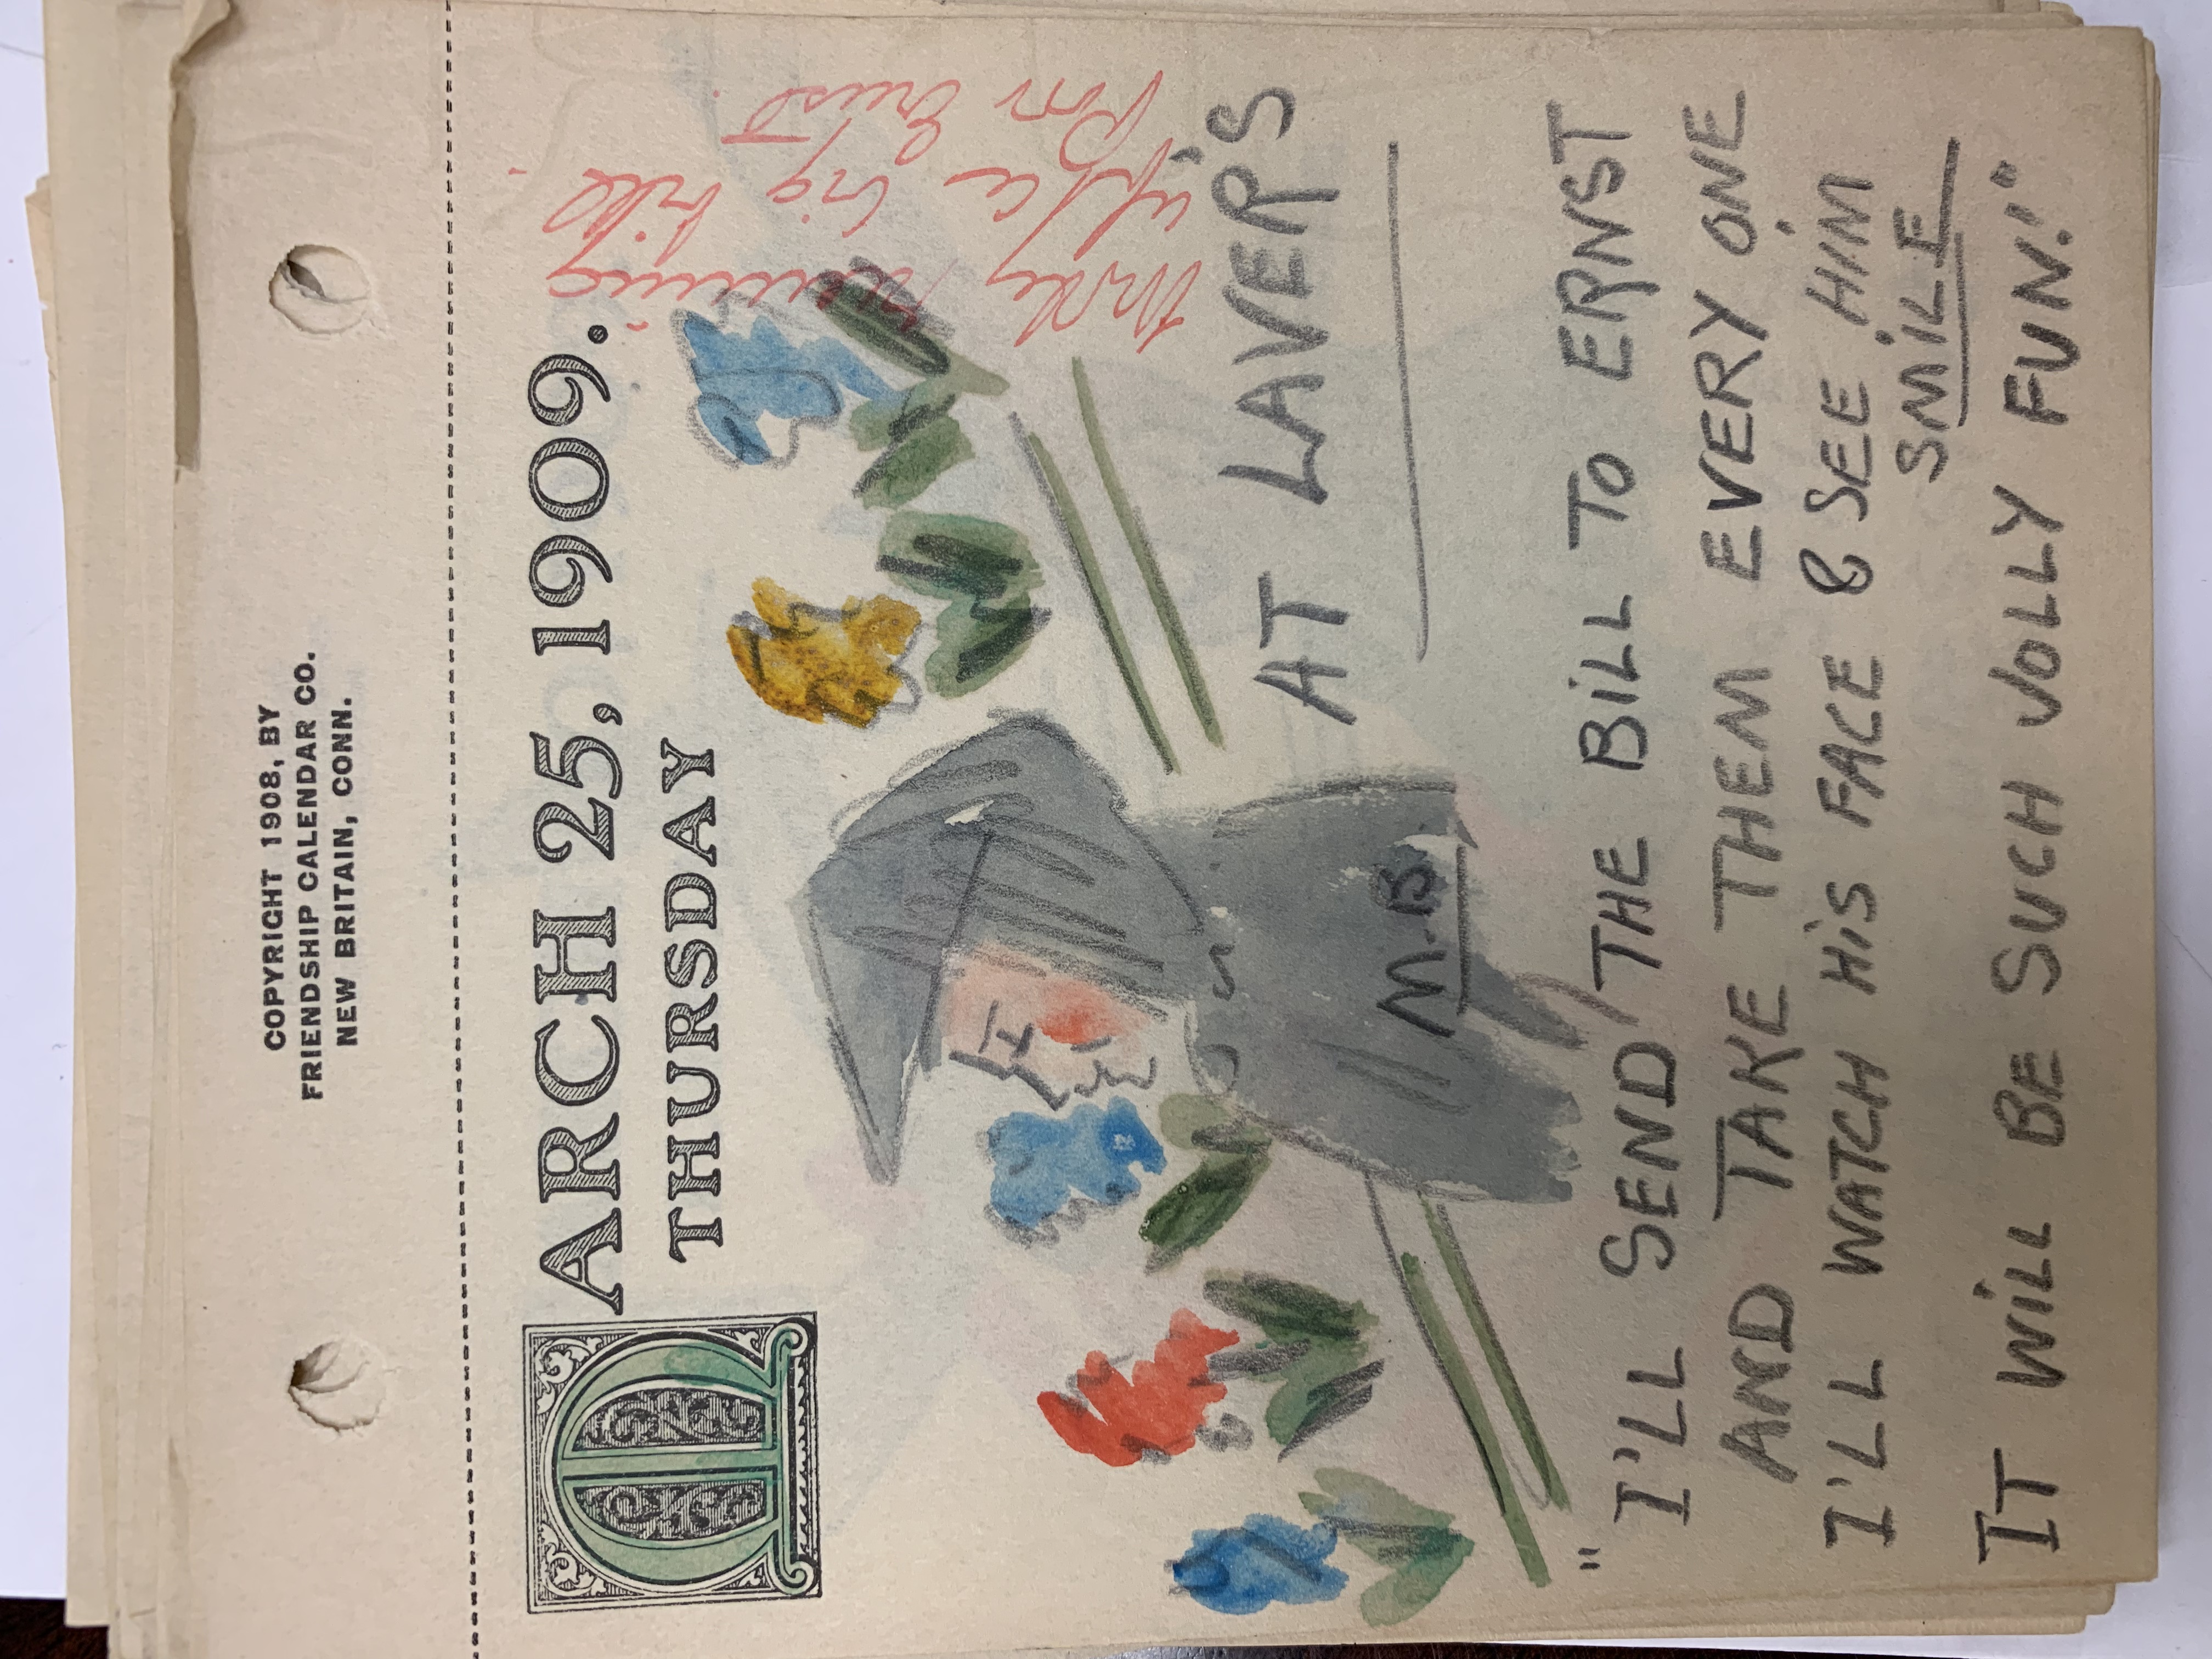 COPYRIGHT 1908, BY
FRIENDSHIP CALENDAR CO.
NEW BRITAIN, CONN.
MARCH 25, 1909.
THURSDAY
running
up a big bill.
Poor Ernst.
AT LAVER'S
M.B.
"I'LL SEND THE BILL TO ERNST
AND TAKE THEM EVERY ONE
I'LL WATCH HIS FACE & SEE HIM
SMILE
IT WILL BE SUCH JOLLY FUN!"